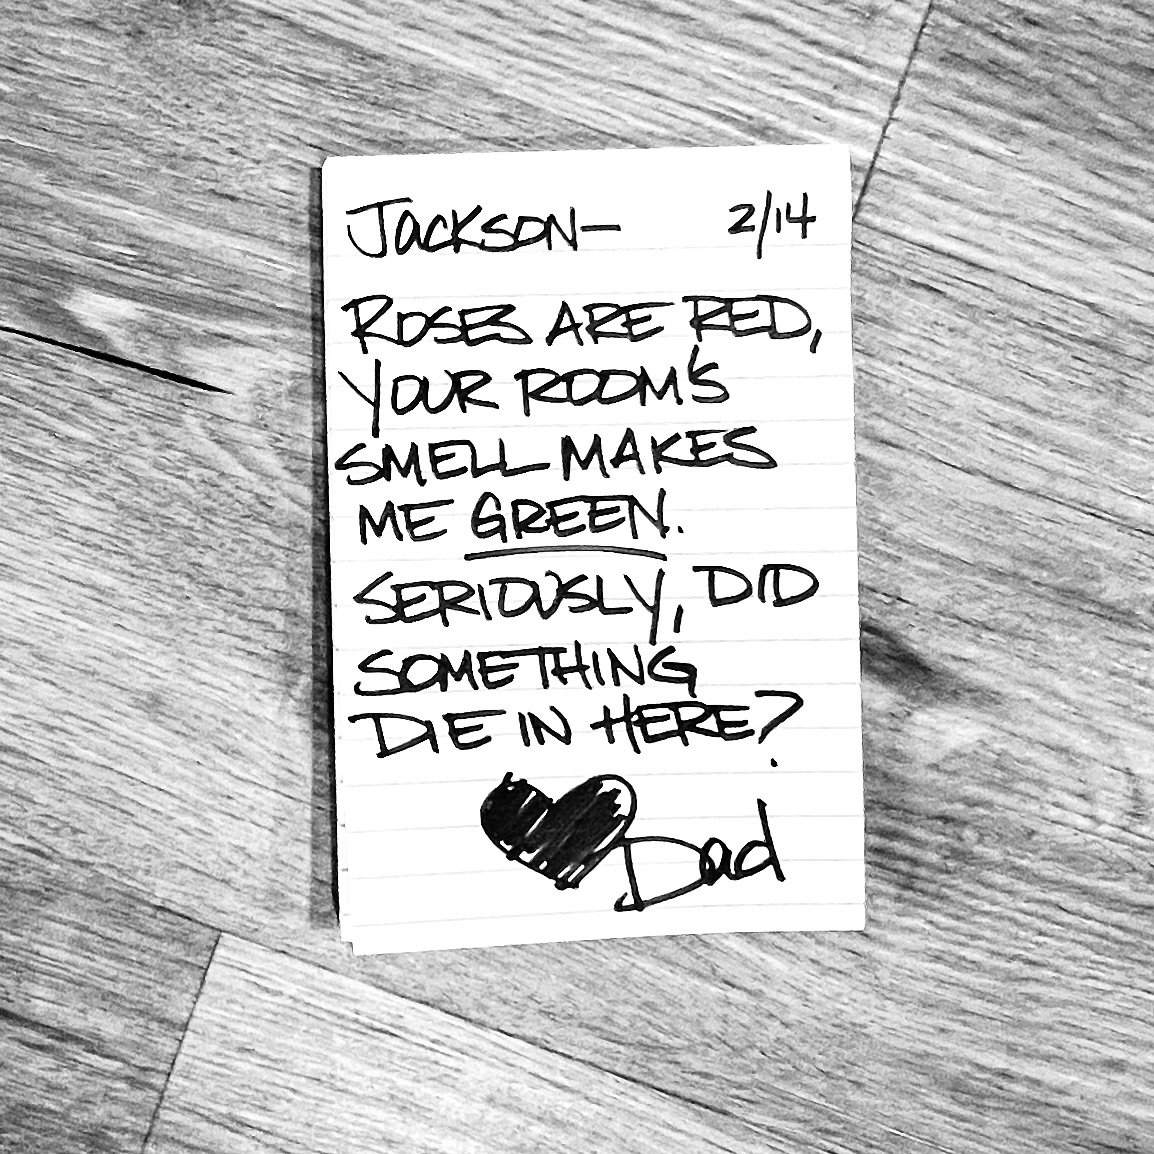 Jackson— 2/14
ROSES ARE RED,
YOUR ROOM'S
SMELL MAKES
ME GREEN.
SERIOUSLY, DID
SOMETHING
DIE IN HERE?
Dad